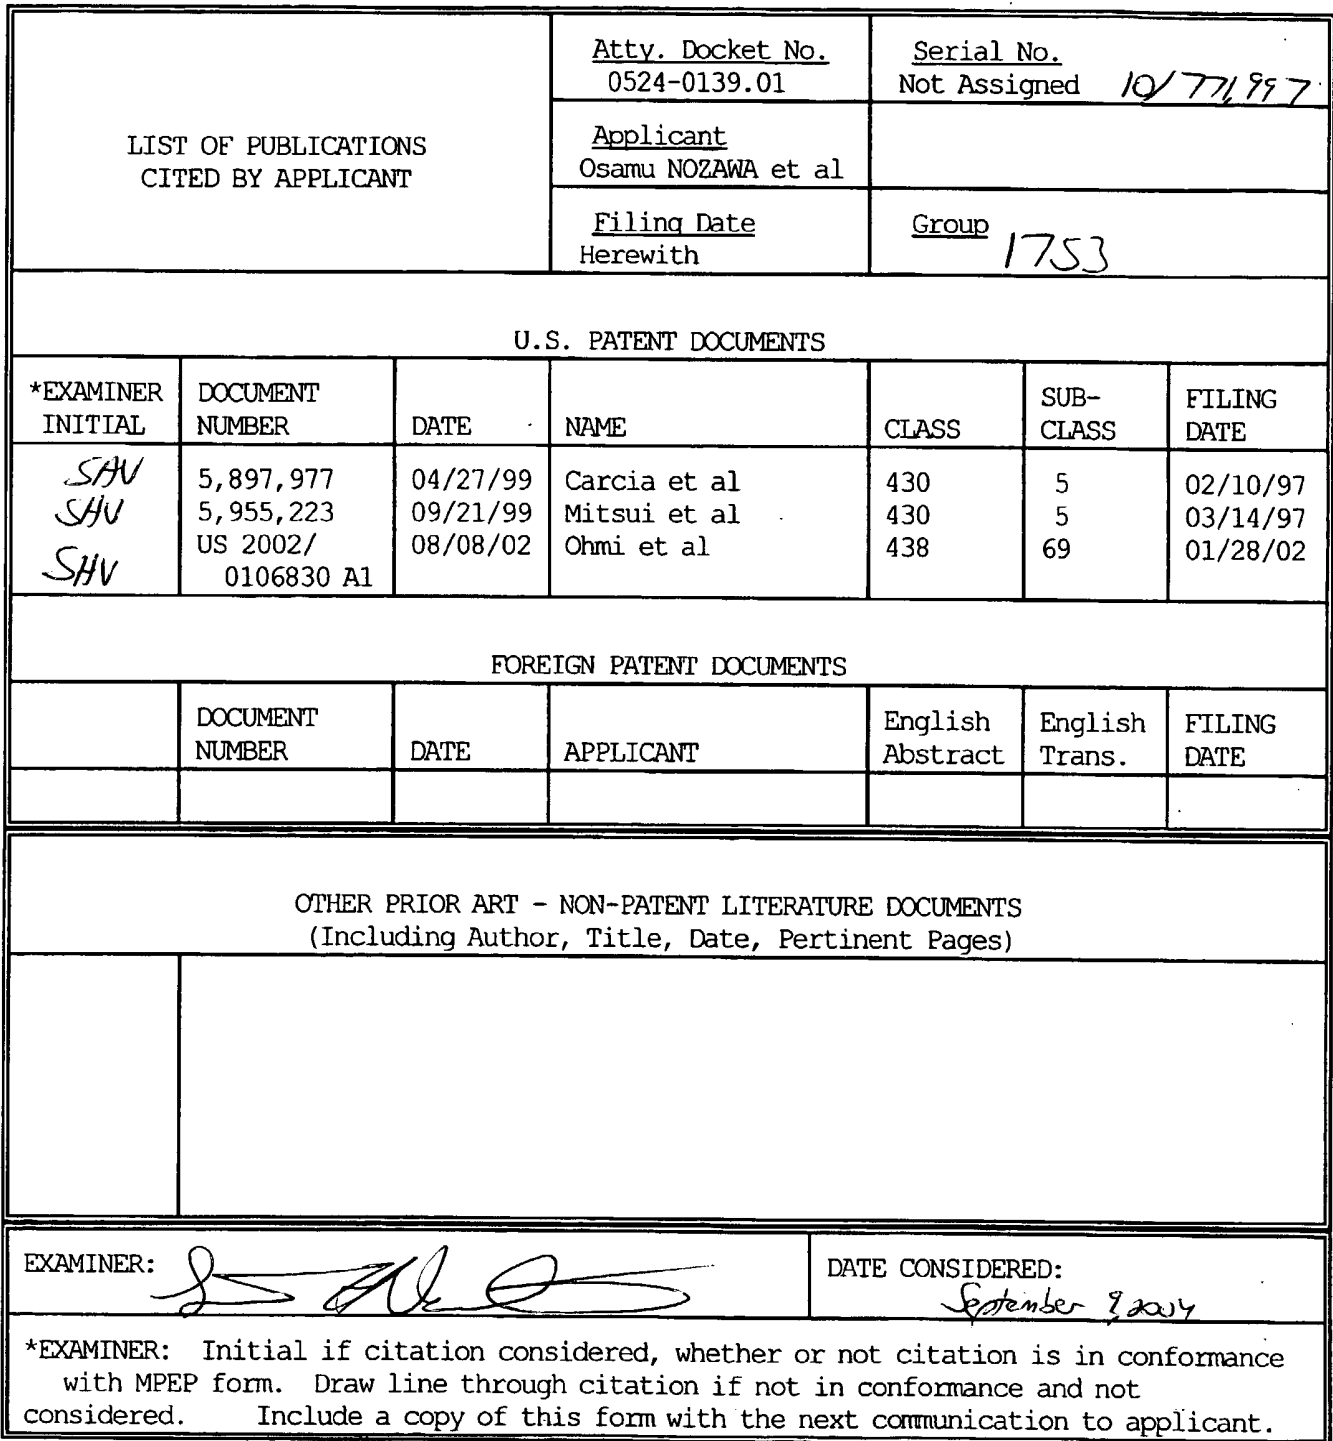 LIST OF PUBLICATIONS
CITED BY APPLICANT
Atty. Docket No.
0524-0139.01
Serial No.
Not Assigned 10/771,997
Applicant
Osamu NOZAWA et al
Filing Date
Herewith
Group 1753
U.S. PATENT DOCUMENTS
*EXAMINER INITIAL
DOCUMENT NUMBER
DATE
NAME
CLASS
SUB-CLASS
FILING DATE
SHV 5,897,977 04/27/99 Carcia et al 430 5 02/10/97
SHV 5,955,223 09/21/99 Mitsui et al 430 5 03/14/97
SHV US 2002/ 08/08/02 Ohmi et al 438 69 01/28/02
0106830 A1
FOREIGN PATENT DOCUMENTS
DOCUMENT NUMBER
DATE
APPLICANT
English Abstract
English Trans.
FILING DATE
OTHER PRIOR ART - NON-PATENT LITERATURE DOCUMENTS
(Including Author, Title, Date, Pertinent Pages)
EXAMINER:
DATE CONSIDERED:
September 9, 2004
*EXAMINER: Initial if citation considered, whether or not citation is in conformance
with MPEP form. Draw line through citation if not in conformance and not
considered. Include a copy of this form with the next communication to applicant.